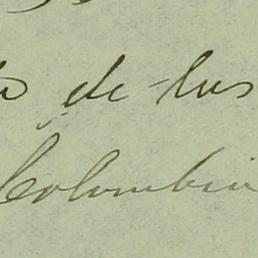 de los
Colombia